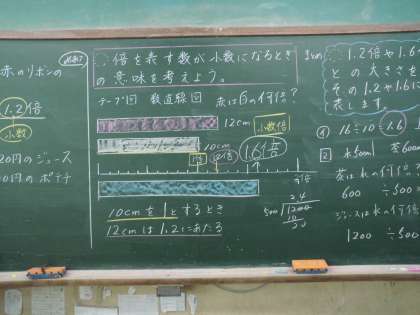 赤のリボンの
1.2倍
小数
20円のジュース
0円のポテチ
倍を表す数が小数になるとき
の意味を考えよう。
テープ図 数直線図 赤は白の何倍?
12cm
小数倍
10cm
1倍
1.2倍
1.6倍
10cmを1とするとき
12cmは1.2にあたる
2.4
500)1200
10
20
1.2倍や1.6
との大きさを
その1.2や1.6に
表します。
16÷10=1.6
2
水500
茶600
茶は水の何倍
600 ÷500
ジュースは水の何倍
1200 ÷500